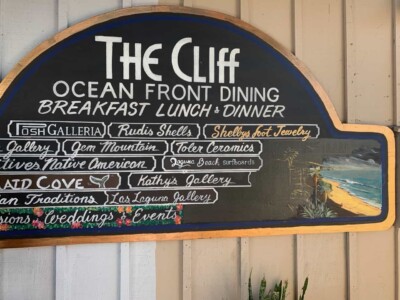 THE CLIFF
OCEAN FRONT DINING
BREAKFAST LUNCH & DINNER
TOSH GALLERIA Rudis Shells Shellys Foot Jewelry
Gallery Gem Mountain Toler Ceramics
Native American Laguna Beach surfboards
COVE Kathys Gallery
Traditions Las Laguna Gallery
Weddings & Events